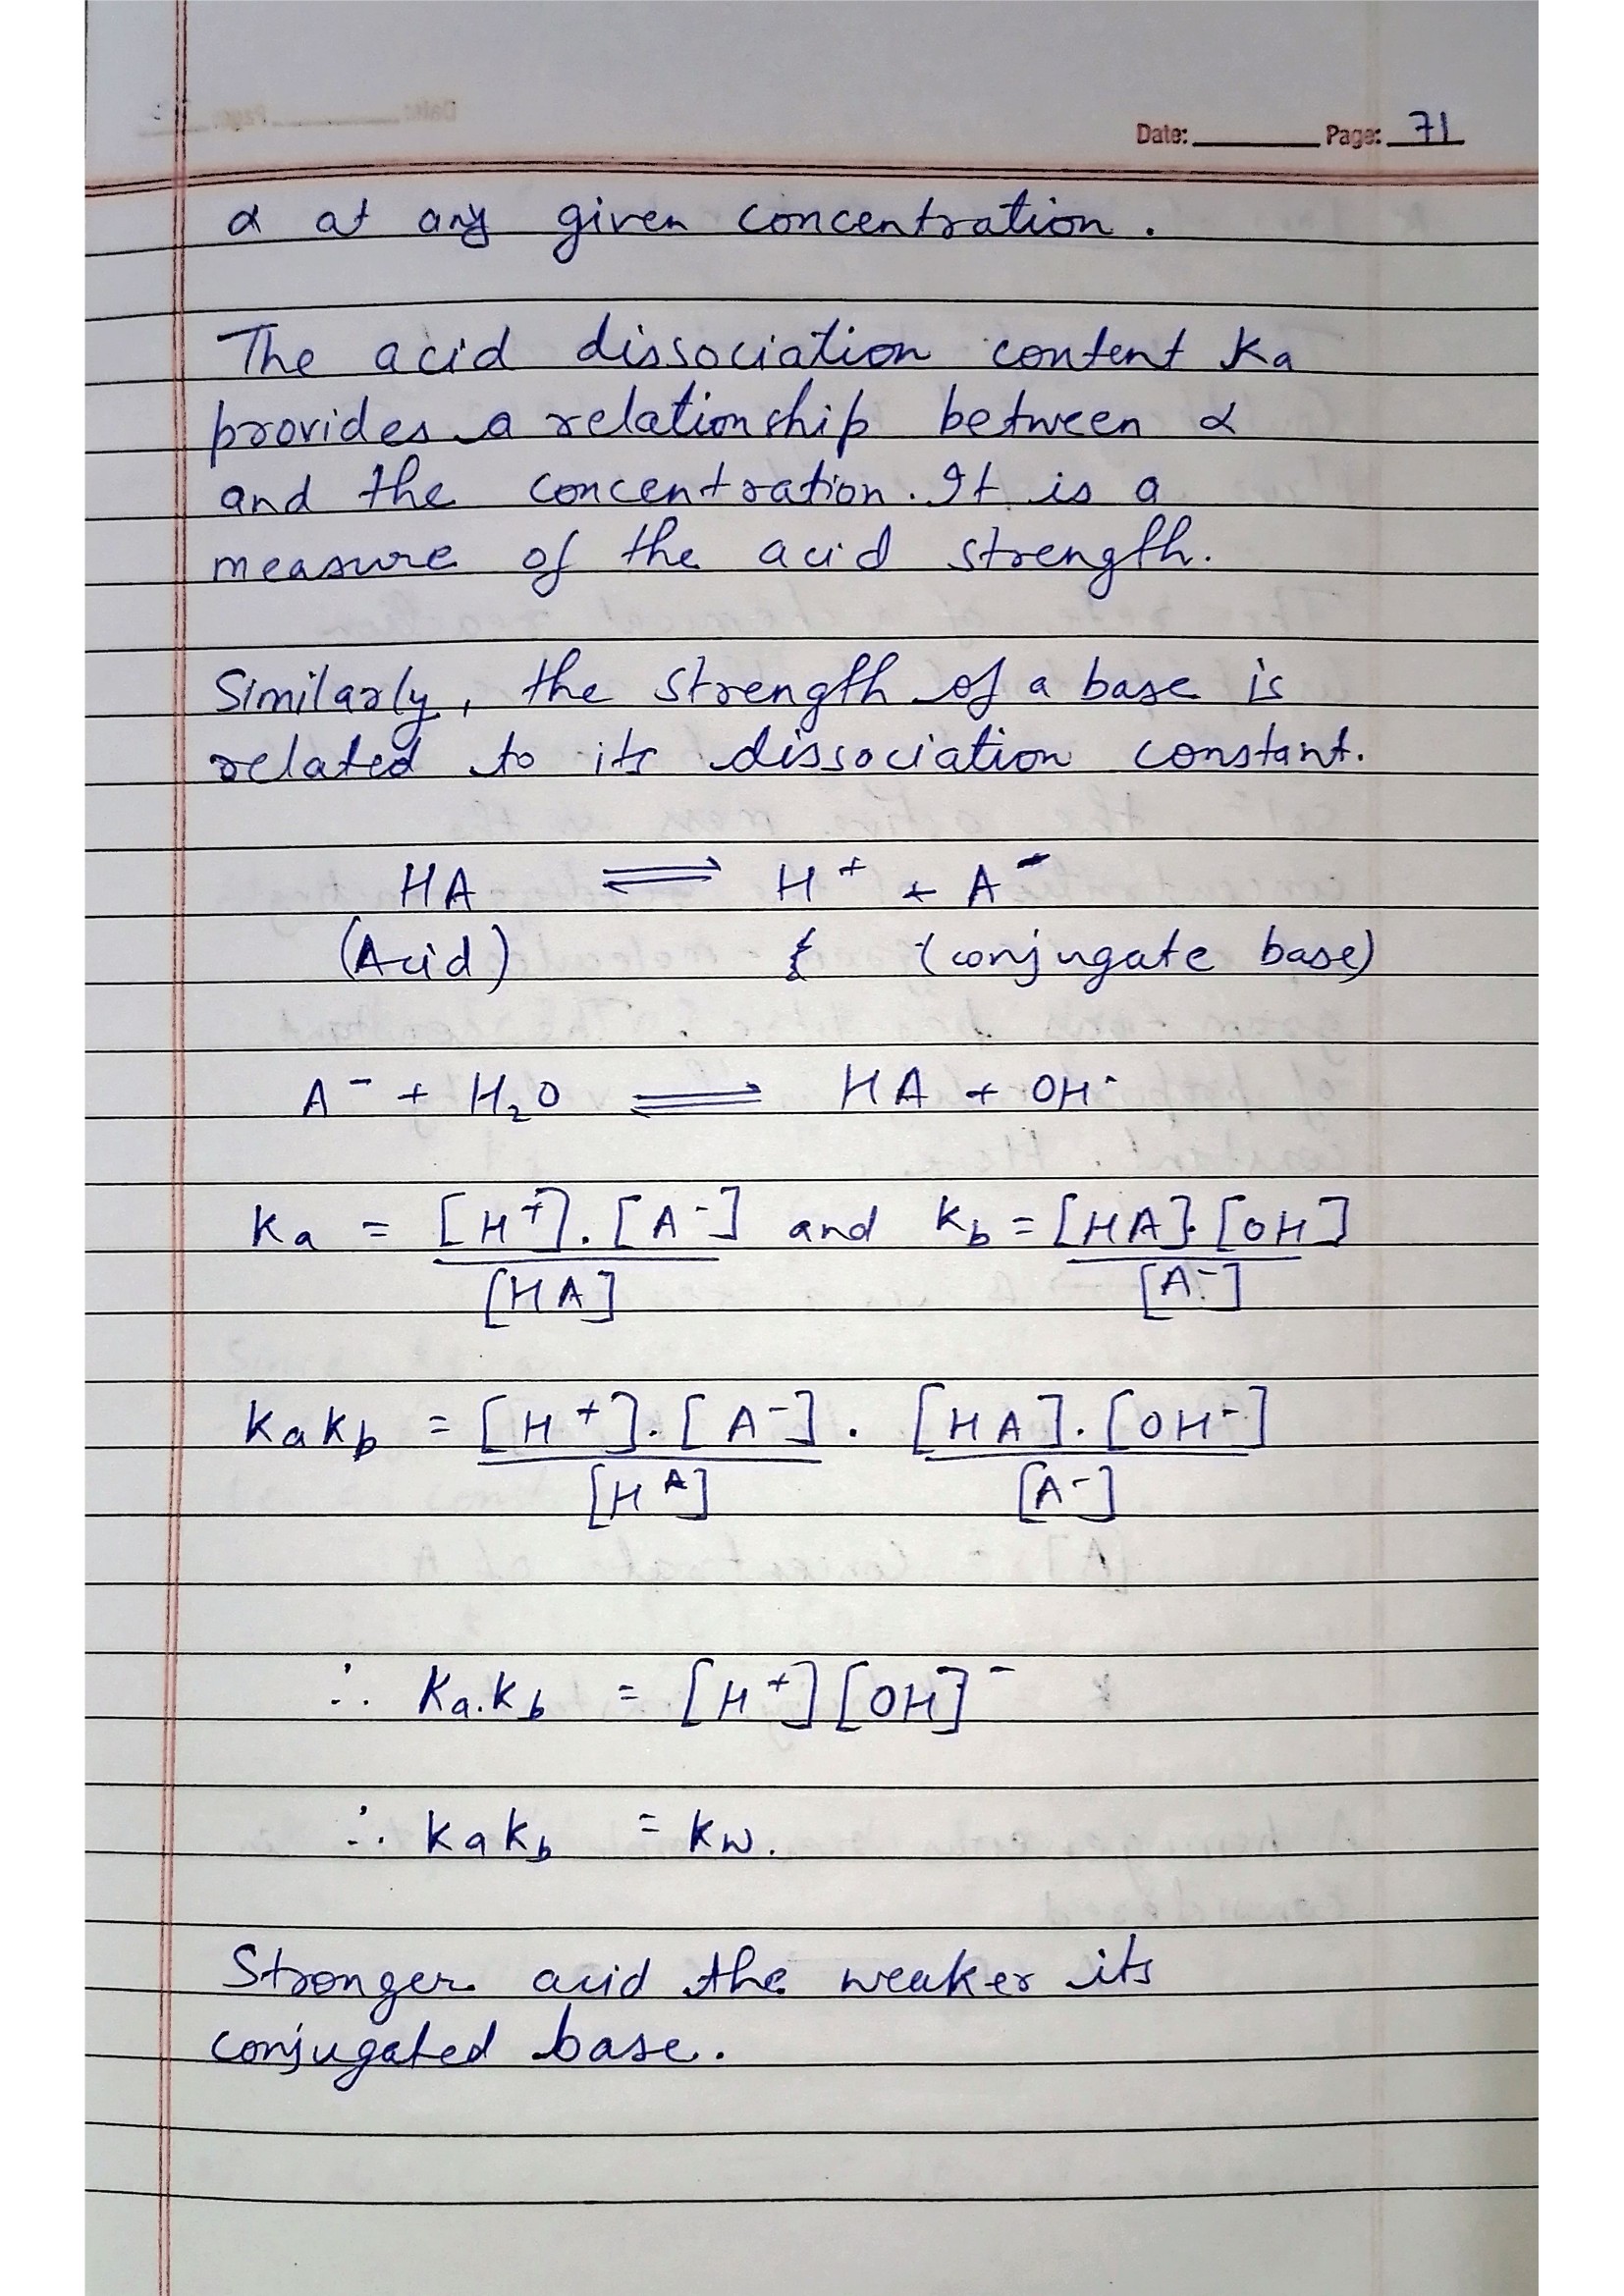 Date: Page: 71
α at any given concentration.
The acid dissociation content Ka
provides a relationship between α
and the concentration. It is a
measure of the acid strength.
Similarly, the strength of a base is
related to its dissociation constant.
HA ⇌ H⁺ + A⁻
(Acid) (conjugate base)
A⁻ + H₂O ⇌ HA + OH⁻
Ka = [H⁺].[A⁻] and Kb = [HA].[OH]
[HA] [A⁻]
KaKb = [H⁺].[A⁻] . [HA].[OH⁻]
[HA] [A⁻]
∴ Ka.Kb = [H⁺][OH]⁻
∴ KaKb = Kw.
Stronger acid the weaker its
conjugated base.